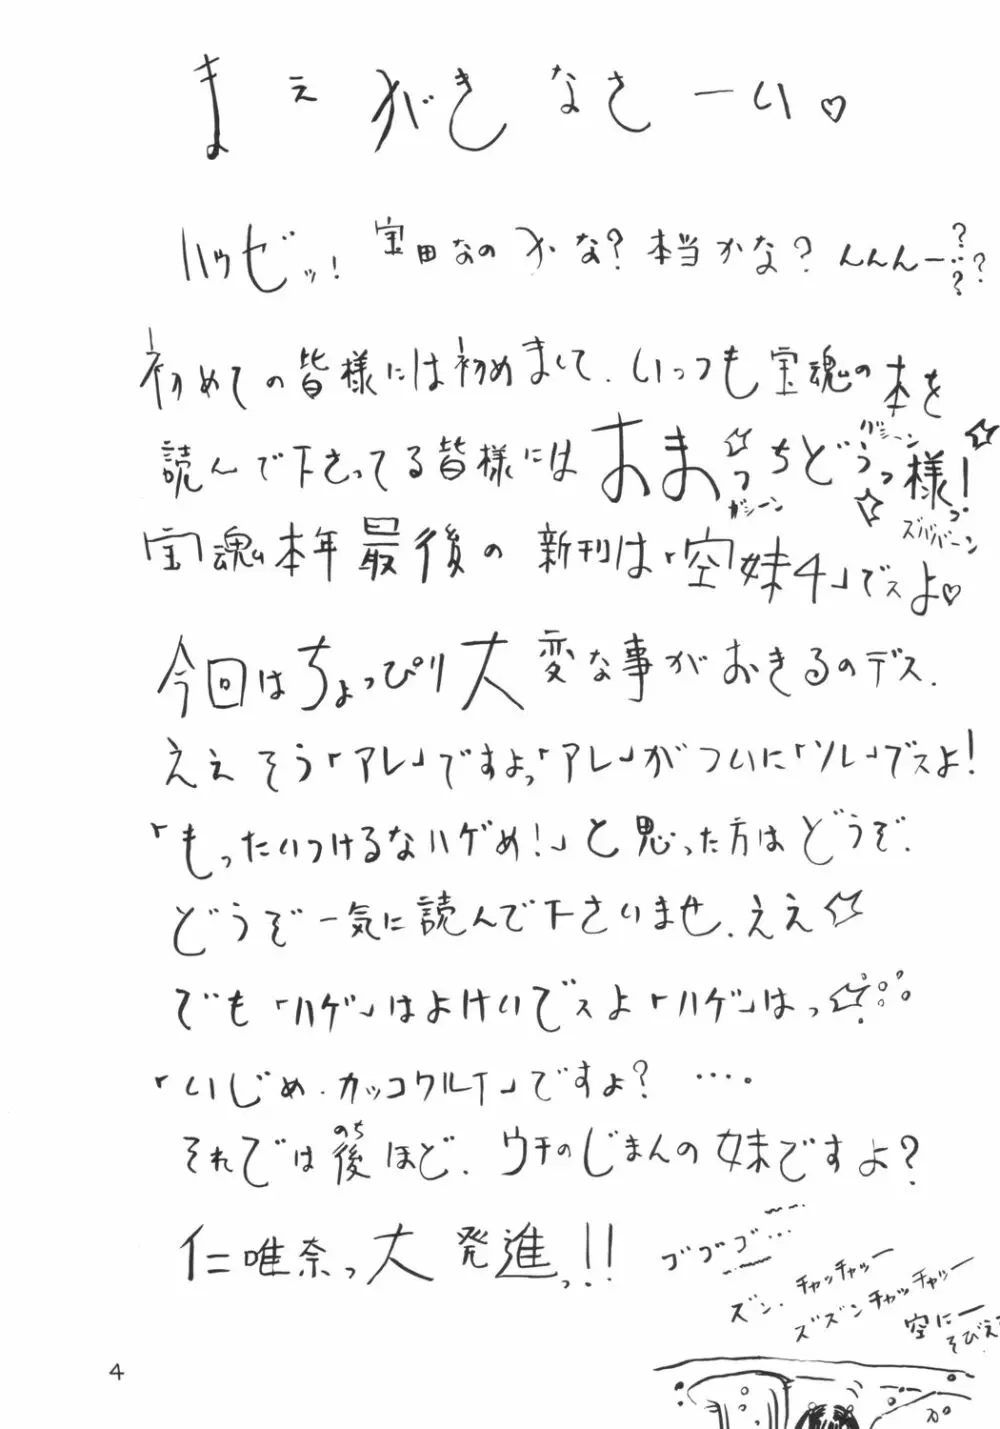 まえがきなさーい♡
ハゥゼッ! 宝田なのかな?本当かな?んんんー…???
初めての皆様には初めまして.いっつも宝魂の本を
読んで下さってる皆様にはおまっちどうっ様っ!
ガシーン
ガシーン
ズババーン
宝魂本年最後の新刊は「空妹4」でスよ♡
今回はちょっぴり大変な事がおきるのデス.
ええそう「アレ」ですよっ「アレ」がついに「ソレ」でスよ!
「もったいつけるなハゲめ!」と思った方はどうぞ.
どうぞ一気に読んで下さいませ.ええ☆
でも「ハゲ」はよけいでスよ「ハゲ」はっ☆
「いじめ.カッコワルイ」ですよ?….
それでは後ほど.ウチのじまんの妹ですよ?
のち
仁唯奈っ大発進っ!!
ゴゴゴ…
ズン.チャッチャー
ズズンチャッチャー
空にー
そびえ
4